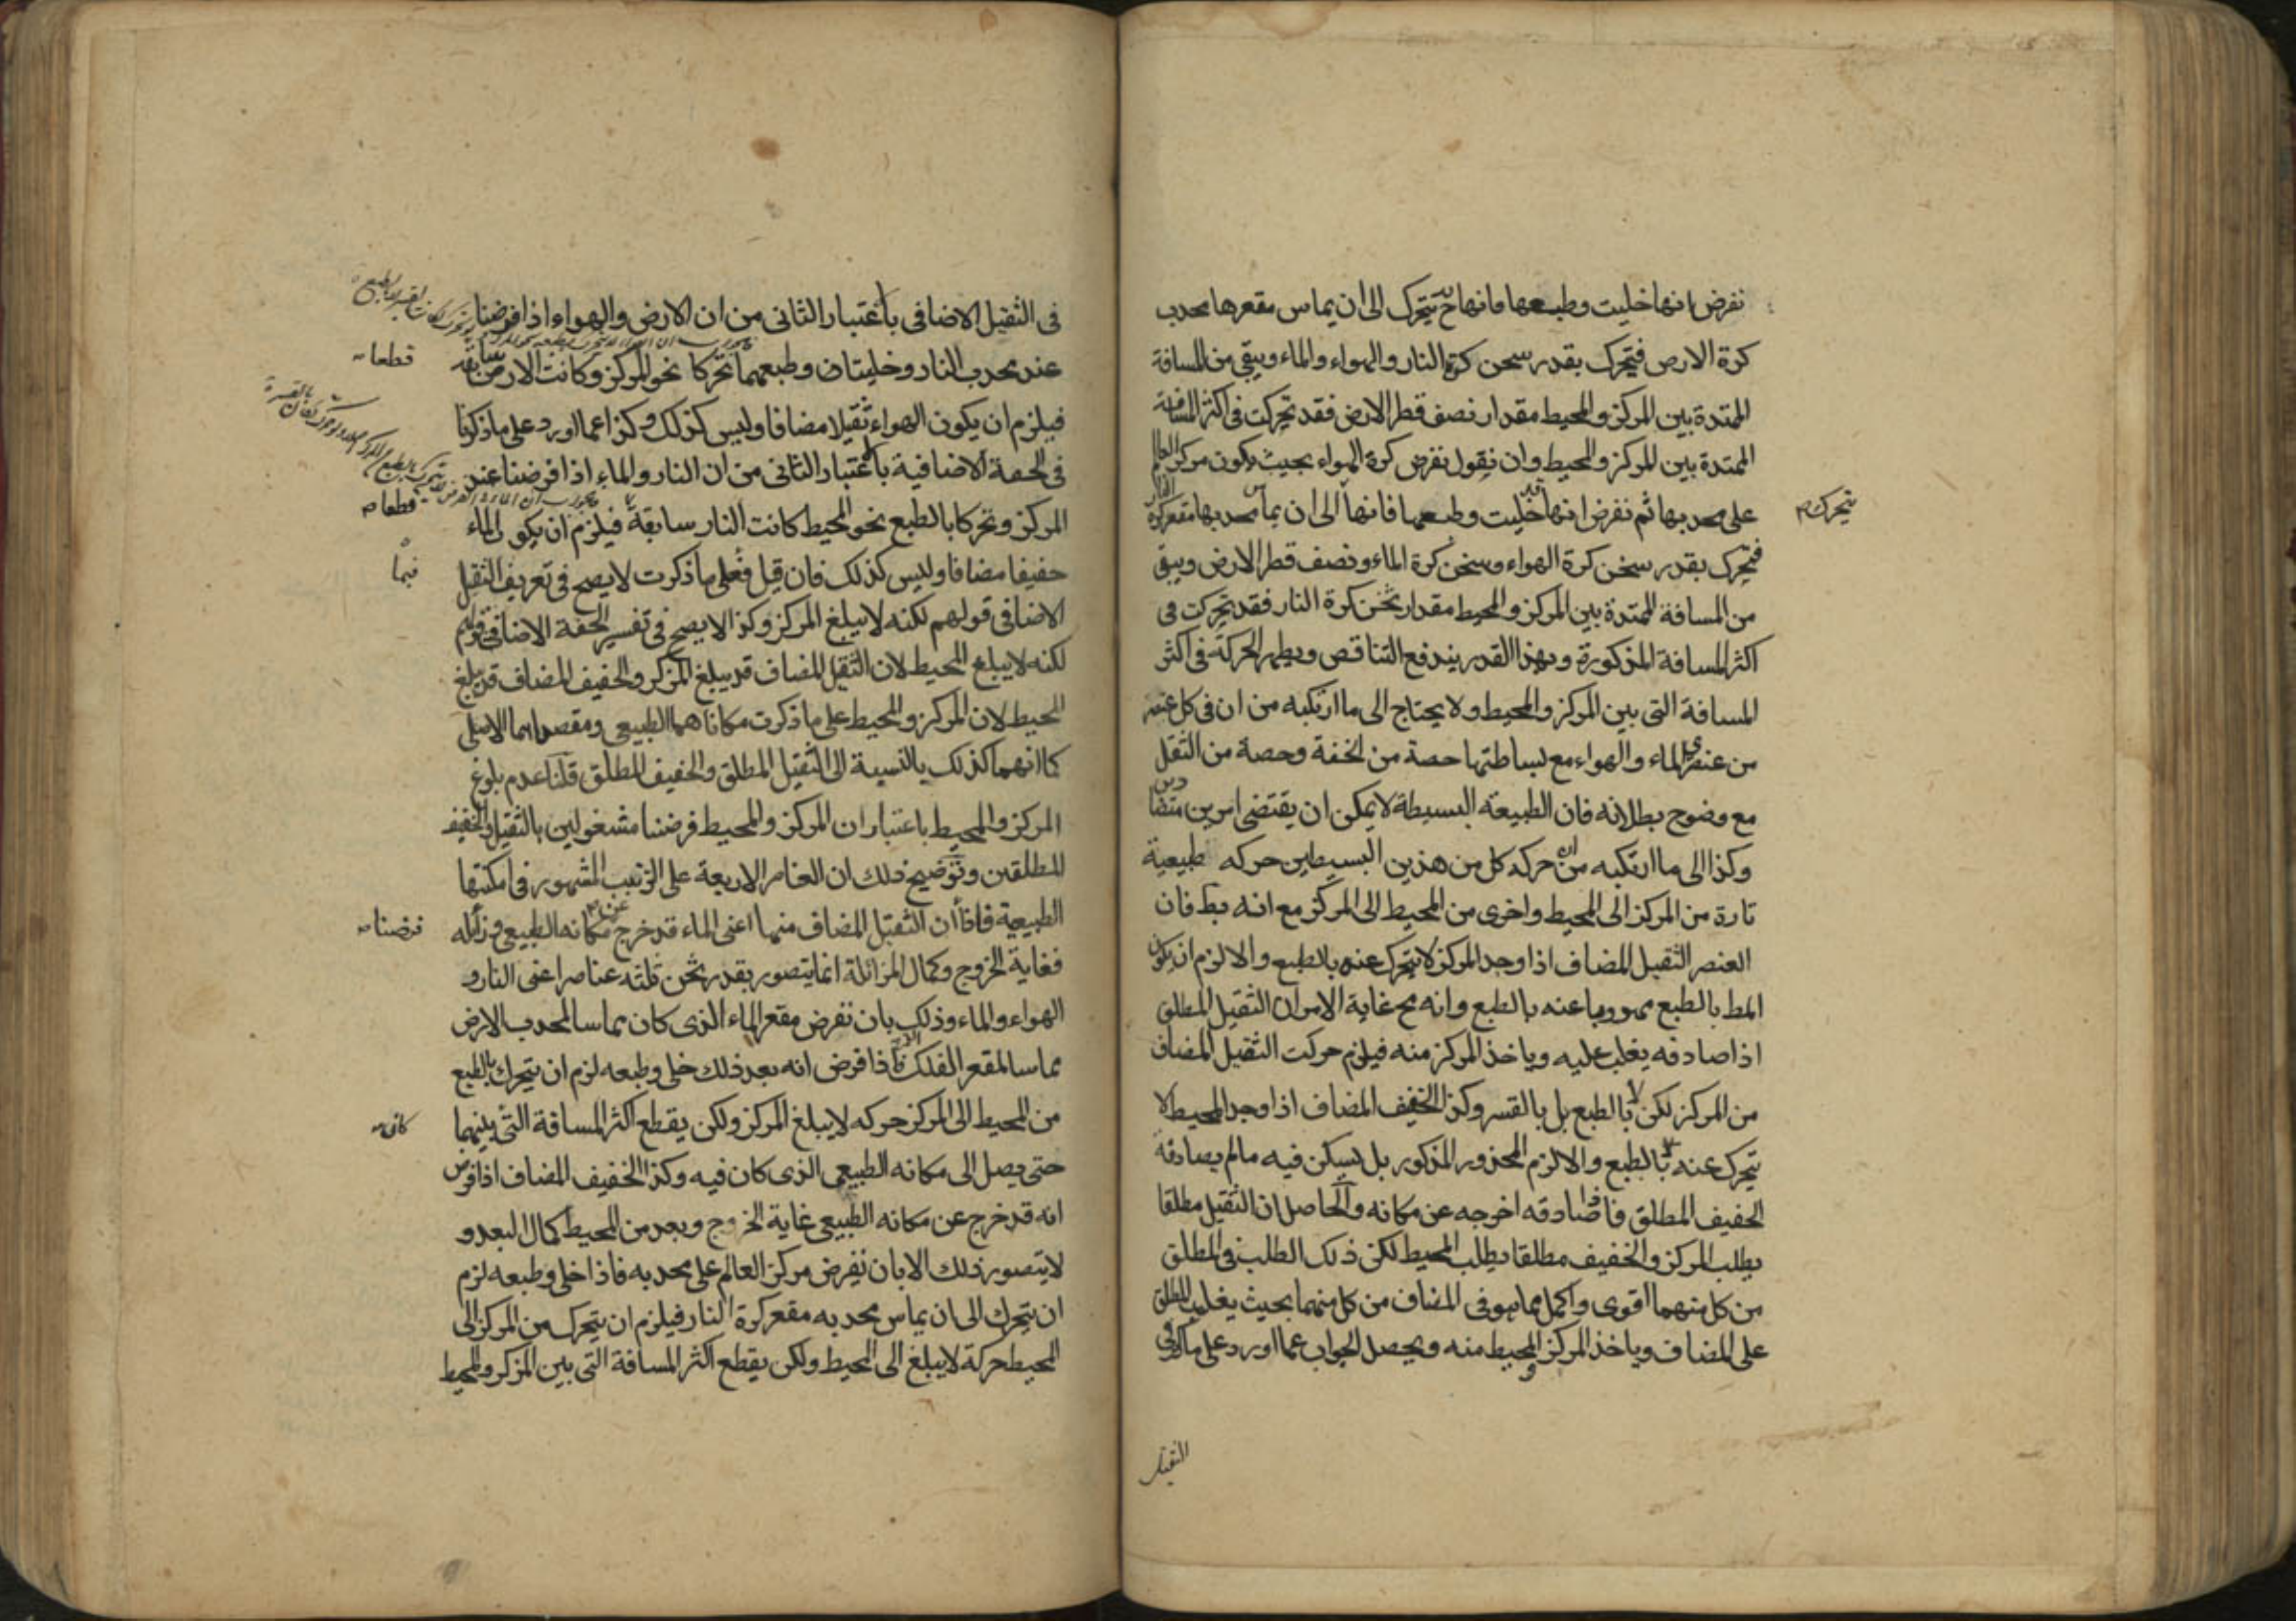 نفرض انها خليت وطبعها فانها ح يتحرك الى ان يماس مقعرها محدب
كرة الارض فيتحرك بقدر سحن كرة النار والهواء والماء ويبقى من المسافة
الممتدة بين المركز والمحيط مقدار نصف قطر الارض فقد تحركت فى اكثر المسافة
الممتدة بين المركز والمحيط وان نقول نفرض كرة الهواء بحيث يكون مركز العالم
على محدبها ثم نفرض انها قد خليت وطبعها فانها الى ان يماس محدبها مقعر كرة النار
يتحرك
فتحرك بقدر سخن كرة الهواء وسخن كرة الماء ونصف قطر الارض ويبقى
من المسافة الممتدة بين المركز والمحيط مقدار ثخن كرة النار فقد تحركت فى
اكثر المسافة المذكورة وبهذا القدر يندفع التناقص ويظهر الحركة فى اكثر
المسافة التى بين المركز والمحيط ولا يحتاج الى ما ارتكبه من ان فى كل
من عنصرى الماء والهواء مع بساطتها حصة من الخفة وحصة من الثقل
مع وضوح بطلانه فان الطبيعة البسيطة لا يمكن ان يقتضى امرين متضادين
وكذا الى ما ارتكبه من ان حركه كل من هذين البسيطين حركه طبيعية
تارة من المركز الى المحيط واخرى من المحيط الى المركز مع انه بط فان
العنصر الثقيل المضاف اذا وجد المركز لا يتحرك عنه بالطبع والا لزم ان يكون
المط بالطبع مهروبا عنه بالطبع وانه مح غاية الامر ان الثقيل المطلق
اذا صادفه يغلب عليه وياخذ المركز منه فيلزم حركت الثقيل المضاف
من المركز لكن لا بالطبع بل بالقسر وكذا الخفيف المضاف اذا وجد المحيط لا
يتحرك عنه بالطبع والا لزم المحذور المذكور بل يسكن فيه مالم يصادفه
الخفيف المطلق فاذا صادفه اخرجه عن مكانه والحاصل ان الثقيل مطلقا
يطلب المركز والخفيف مطلقا يطلب المحيط لكن ذلك الطلب فى المطلق
من كل منهما اقوى واكمل مما هو فى المضاف من كل منهما بحيث يغلب المطلق
على المضاف وياخذ المركز والمحيط منه ويحصل الجواب عما اورد على
الثقيل
فى الثقيل الاضافى باعتبار الثانى من ان الارض والهواء اذا فرضنا
عند محدب النار وخليتا وطبعهما تحركا نحو المركز وكانت الارض سابقه
قطعا
فيلزم ان يكون الهواء ثقيلا مضافا وليس كذلك وكذا عما اورد على ما ذكرنا
فى الخفة الاضافية باعتبار الثانى من ان النار والماء اذا فرضنا عند
المركز وتحركا بالطبع نحو المحيط كانت النار سابقة فيلزم ان يكون الماء
قطعا
خفيفا مضافا وليس كذلك فان قيل فعلى ما ذكرت لا يصح فى تعريف الثقيل
فيما
الاضافى قولهم لكنه لا يبلغ المركز وكذا لا يصح فى تفسير الخفة الاضافى قولهم
لكنه لا يبلغ المحيط لان الثقيل المضاف قد يبلغ المركز والخفيف المضاف قد يبلغ
المحيط لان المركز والمحيط على ما ذكرت مكاناهما الطبيعى ومقصداهما الاصلى
كما انهما كذلك بالنسبة الى الثقيل المطلق والخفيف المطلق قلنا عدم بلوغ
المركز والمحيط باعتبار ان المركز والمحيط فرضنا مشغولين بالثقيل والخفيف
المطلقين وتوضيح ذلك ان العناصر الاربعة على الترتيب المشهور فى امكنتها
الطبيعية فاذا ان الثقيل المضاف منها اعنى الماء قد خرج عن مكانه الطبيعى وزايله
فرضنا
فغاية الخروج وكمال المزائلة انما يتصور بقدر ثخن ثلثه عناصر اعنى النار و
الهواء والماء وذلك بان نفرض مقعر الماء الذى كان مماسا لمحدب الارض
مماسا لمقعر الفلك فاذا فرض انه بعد ذلك خلى وطبعه لزم ان يتحرك بالطبع
من المحيط الى المركز حركه لا يبلغ المركز ولكن يقطع اكثر المسافة التى بينهما
كان
حتى يصل الى مكانه الطبيعى الذى كان فيه وكذا الخفيف المضاف اذا فرض
انه قد خرج عن مكانه الطبيعى غاية الخروج وبعد من المحيط كمال البعد و
لا يتصور ذلك الا بان نفرض مركز العالم على محدبه فاذا خلى وطبعه لزم
ان يتحرك الى ان يماس محدبه مقعر كرة النار فيلزم ان يتحرك من المركز الى
المحيط حركة لا يبلغ الى المحيط ولكن يقطع اكثر المسافة التى بين المركز والمحيط